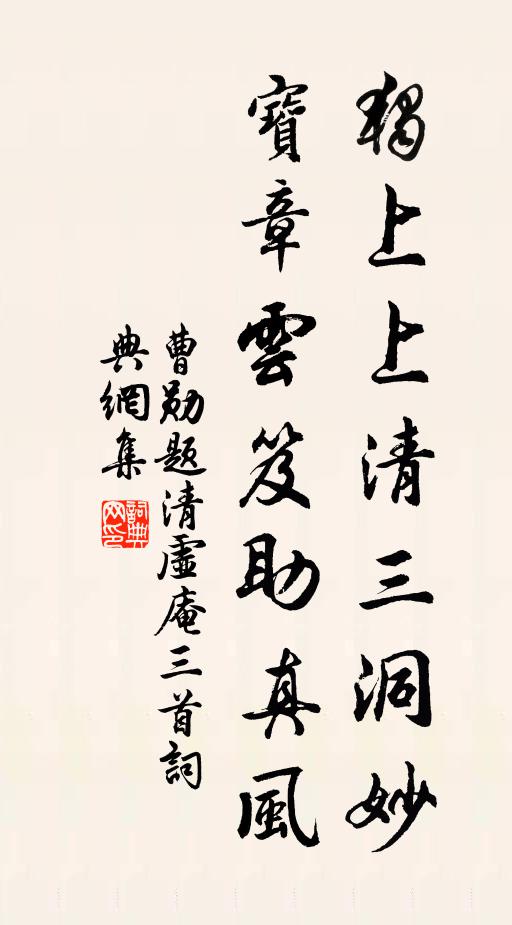 獨上上清三洞妙
寶章雲笈助真風
曹勛題清虛庵三首詞
典網集
詞典網印